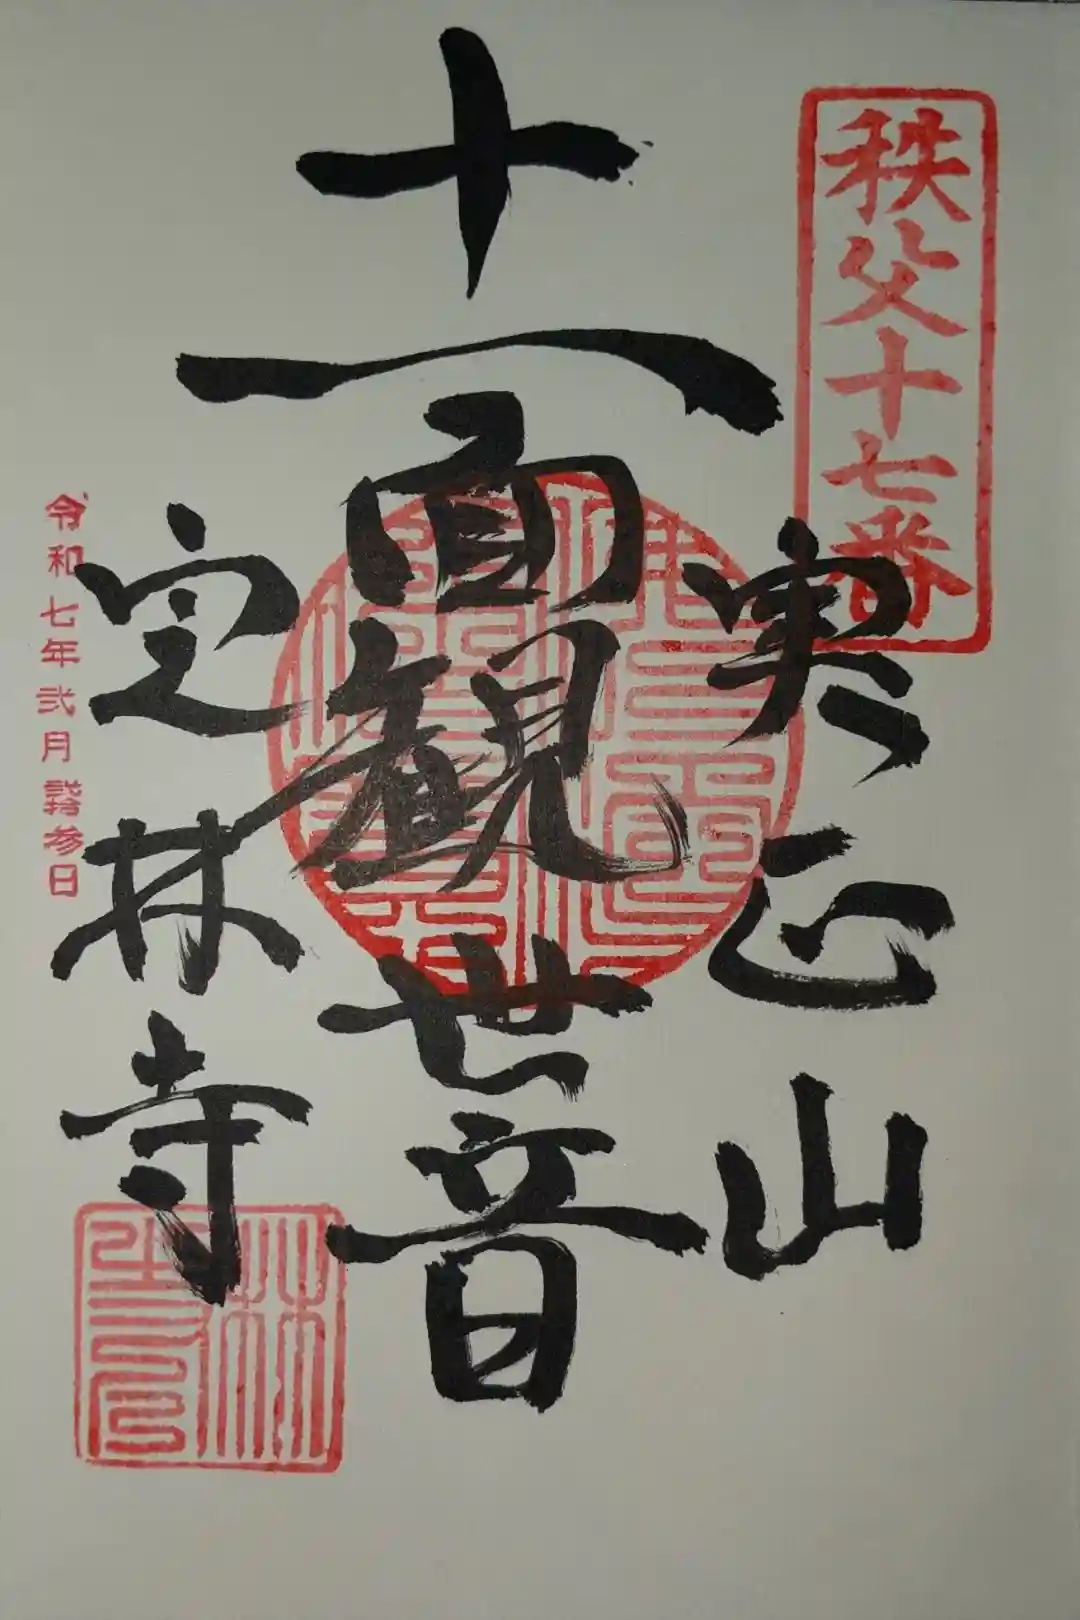 秩父十七番
実正山
十一面観世音
定林寺
令和七年弐月参日